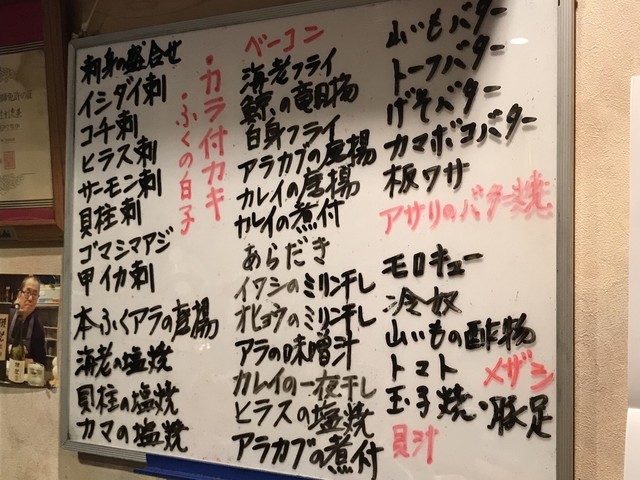 刺身の盛合せ
イシダイ刺
コチ刺
ヒラス刺
サーモン刺
貝柱刺
ゴマシマアジ
甲イカ刺
本ふくアラの唐揚
海老の塩焼
貝柱の塩焼
カマの塩焼
・カラ付カキ
・ふくの白子
ベーコン
海老フライ
鯨の竜田揚
白身フライ
アラカブの唐揚
カレイの唐揚
カレイの煮付
あらだき
イワシのミリン干し
オヒョウのミリン干し
アラの味噌汁
カレイの一夜干し
ヒラスの塩焼
アラカブの煮付
山いもバター
トーフバター
げそバター
カマボコバター
板ワサ
アサリのバター焼
モロキュー
冷奴
山いもの酢物
トマト
メザシ
玉子焼・豚足
貝汁